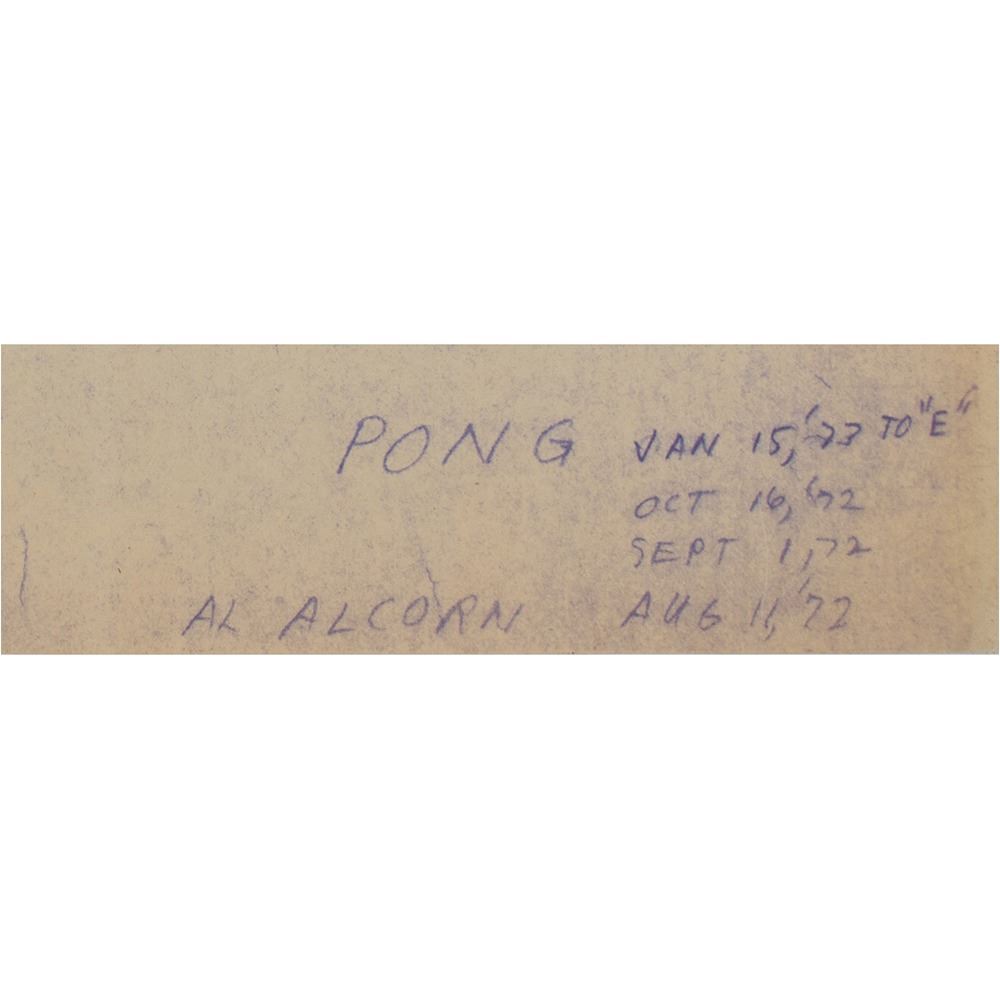 PONG JAN 15, '73 TO "E"
OCT 16, '72
SEPT 1, 72
AL ALCORN AUG 11, '72